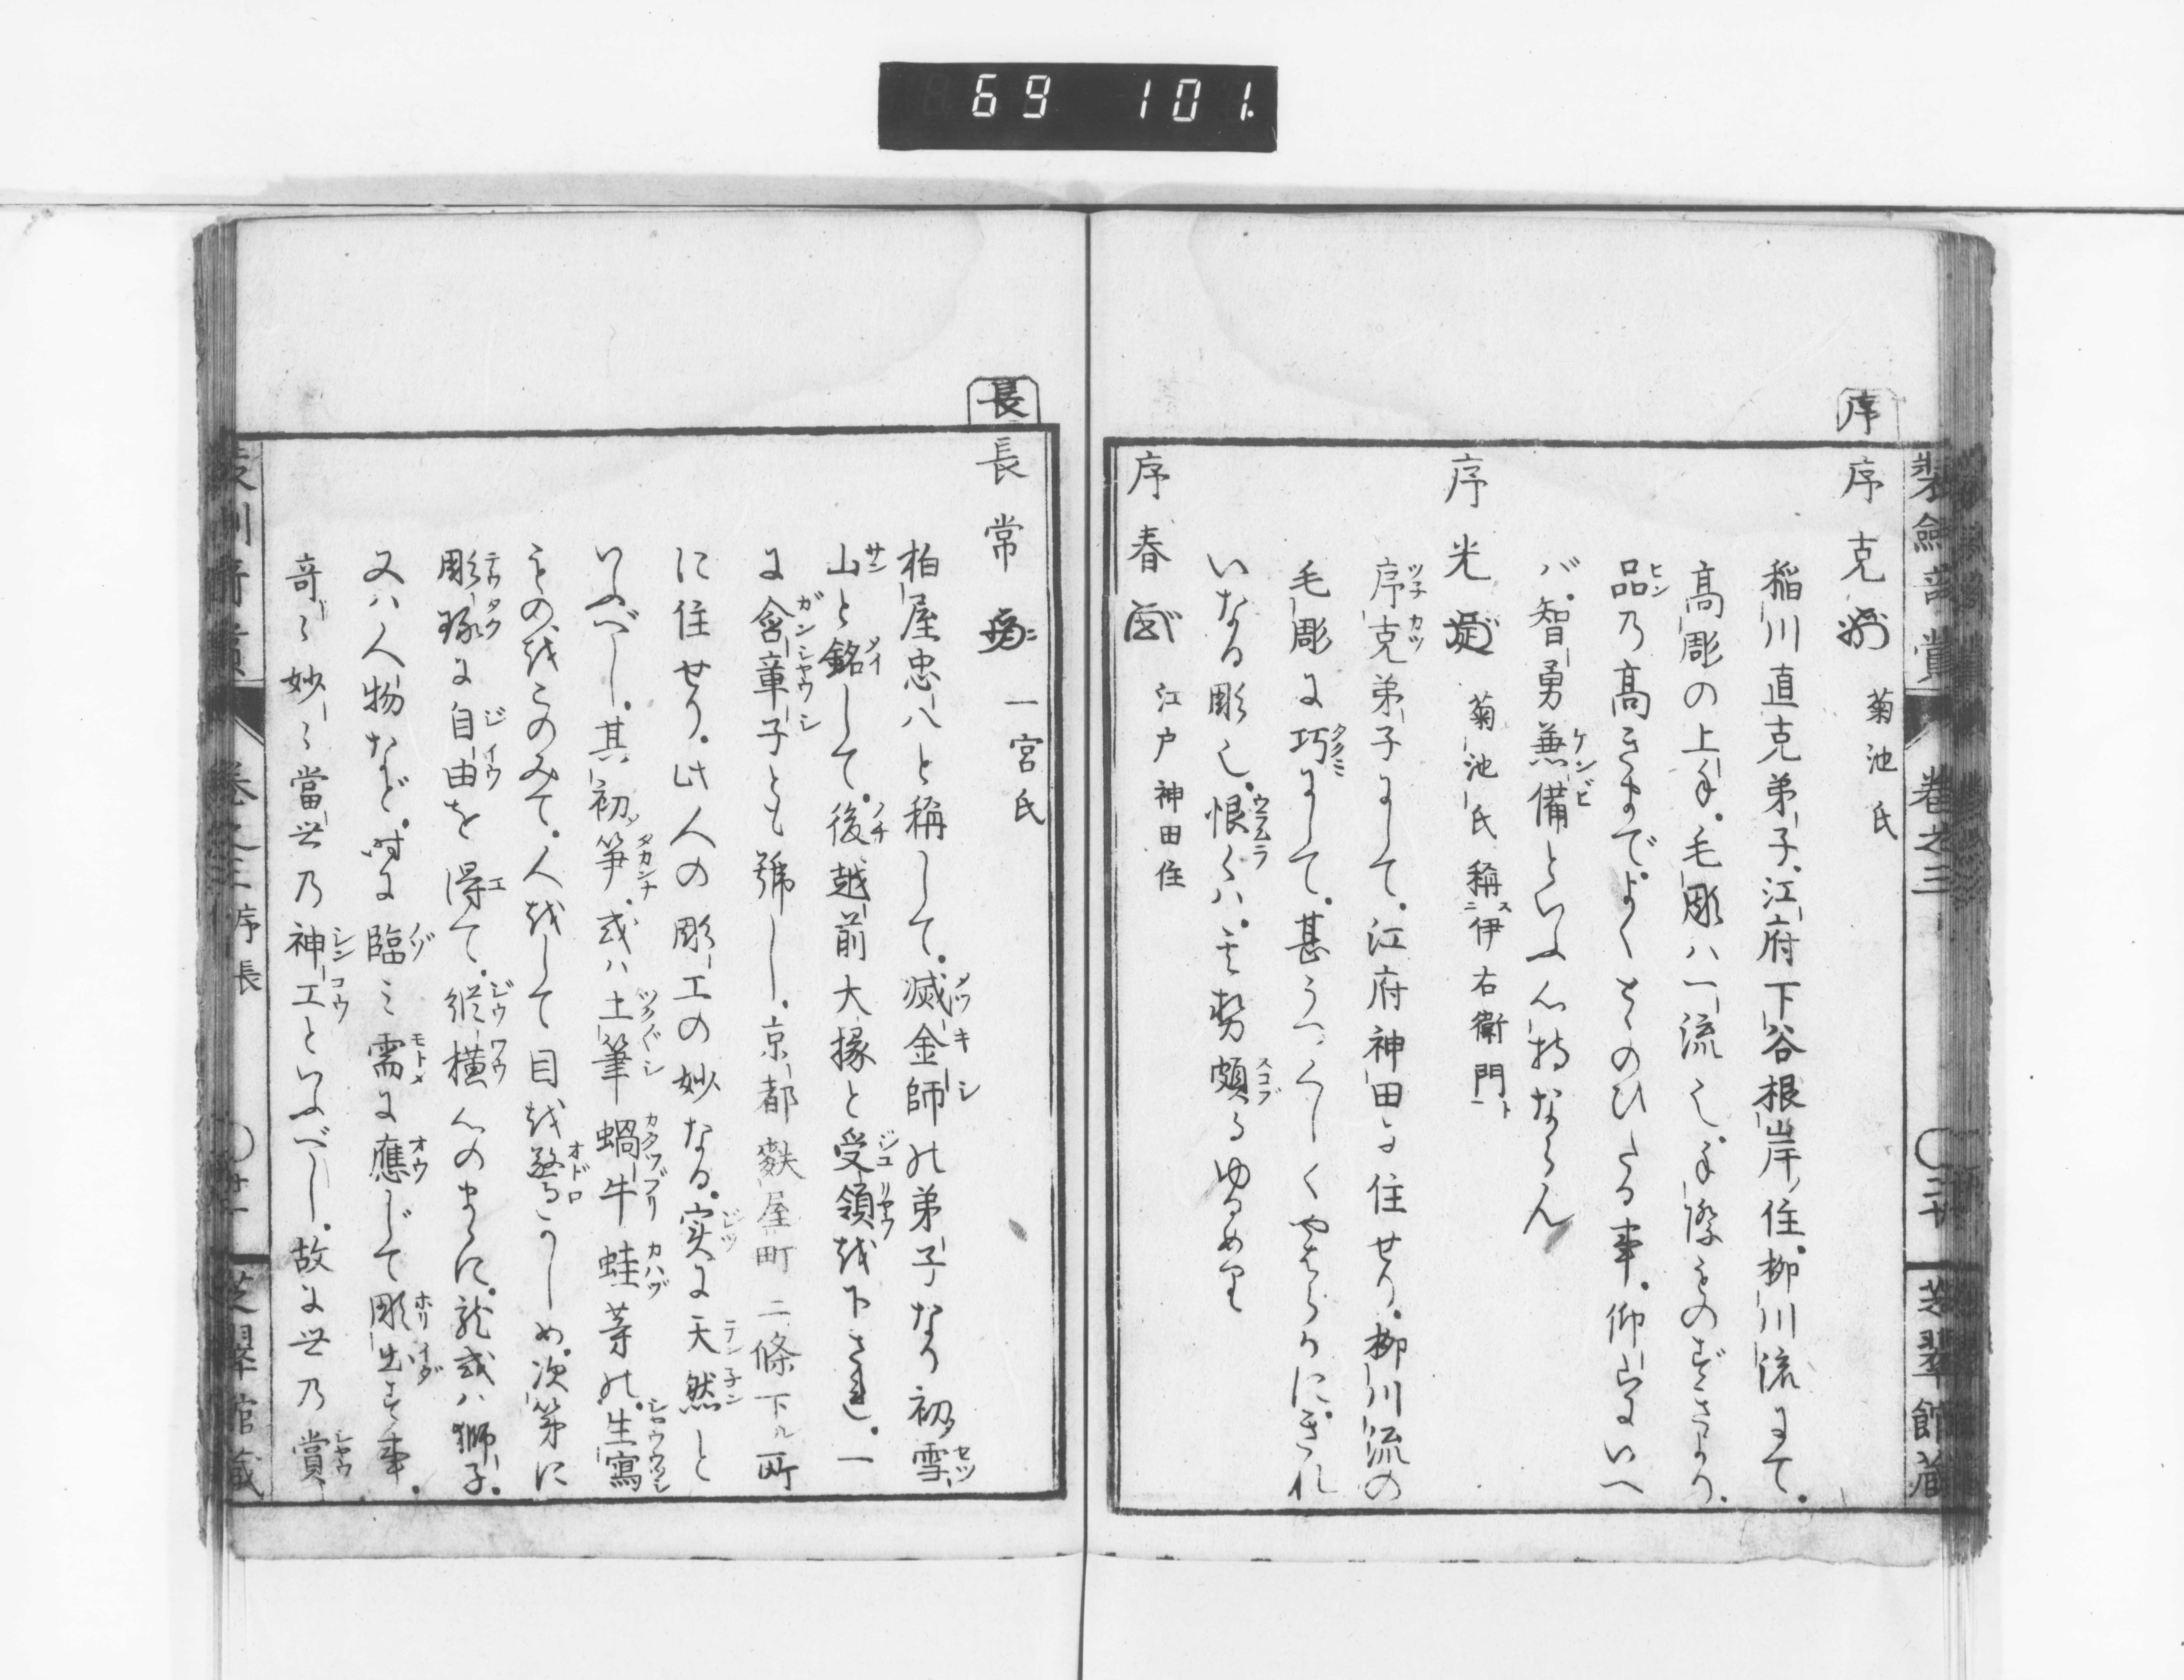 69 101.
装劒竒賞 巻之三 芝翠館蔵
序
序克 菊池氏
稲川直克弟子、江府下谷根岸住。柳川流にて。
高彫の上手。毛彫ハ一流也。手際ものずきよより。
品乃高きまで。よくとゝのひたる事。仰山にいへ
バ。智勇兼備といふ心持ならん
序光 菊池氏 稱伊右衛門
序克弟子にして。江府神田に住せり。柳川流の
毛彫に巧にして。甚うつくしくやはらかにぎれ
いなる彫也。恨くハ。其勢頗るゆるめり
序春 江戸神田住
長
長常 一宮氏
柏屋忠八と稱して。滅金師の弟子なり初雪
山と銘して。後越前大掾と受領を下され。一
に含章子とも號し。京都麩屋町二條下ル所
に住せり。此人の彫工の妙なる。実に天然と
いふべし。其初笋。或ハ土筆蝸牛蛙等の。生寫
ものをこのみて。人をして目を驚かしめ。次第に
彫琢に自由を得て。縦横心のまゝに。龍或ハ獅子。
又ハ人物など。時に臨ミ需に應じて彫出す事。
奇〻妙〻當世乃神工といふべし。故に世乃賞
巻之三 序 長 芝翠館蔵